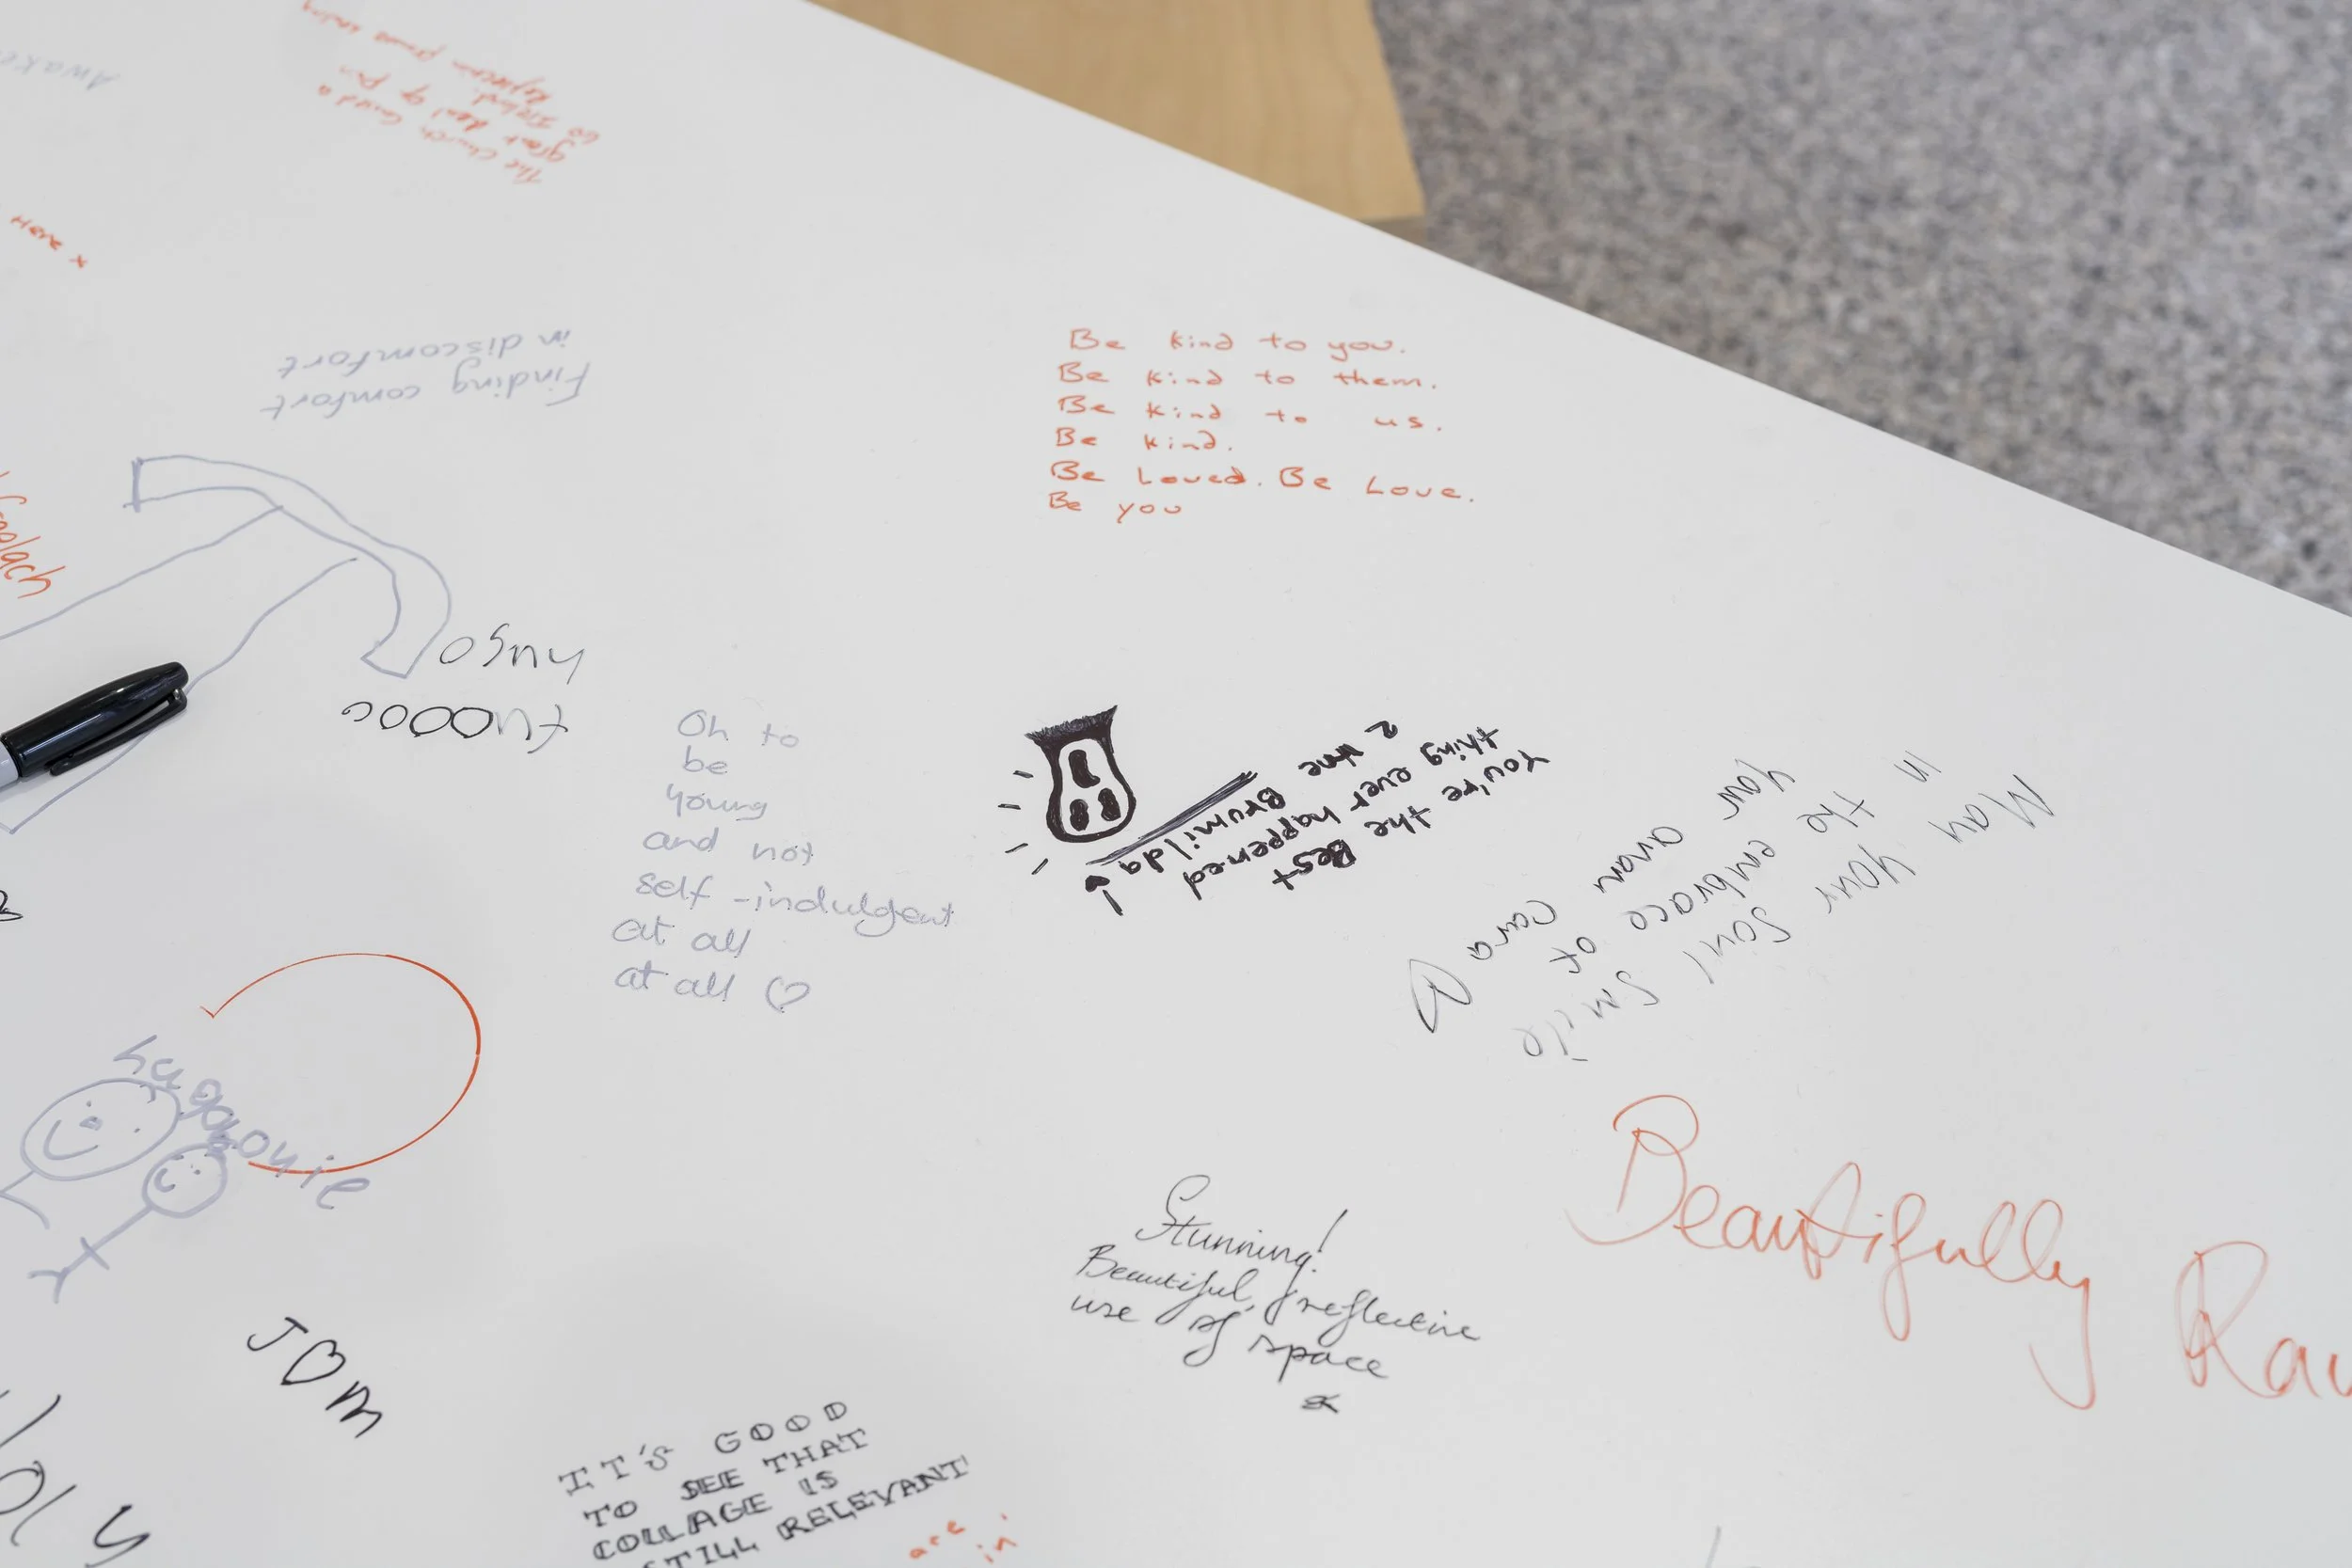 Awake
The Church caused a
great deal of pain
to Ireland.
Here x
Finding comfort
in discomfort
Be kind to you.
Be kind to them.
Be kind to us.
Be kind.
Be Loved. Be Love.
Be you
hugo
Oh to
be
young
and not
self-indulgent
at all
at all ♡
You're the Best
thing ever happened
2 the Brumilda
May your soul smile
in the embrace of
your own
hugo
Louie
Beautifully Raw
Stunning!
Beautiful, reflective
use of space
x
J♡M
IT'S GOOD
TO SEE THAT
COLLAGE IS
STILL RELEVANT
are
in